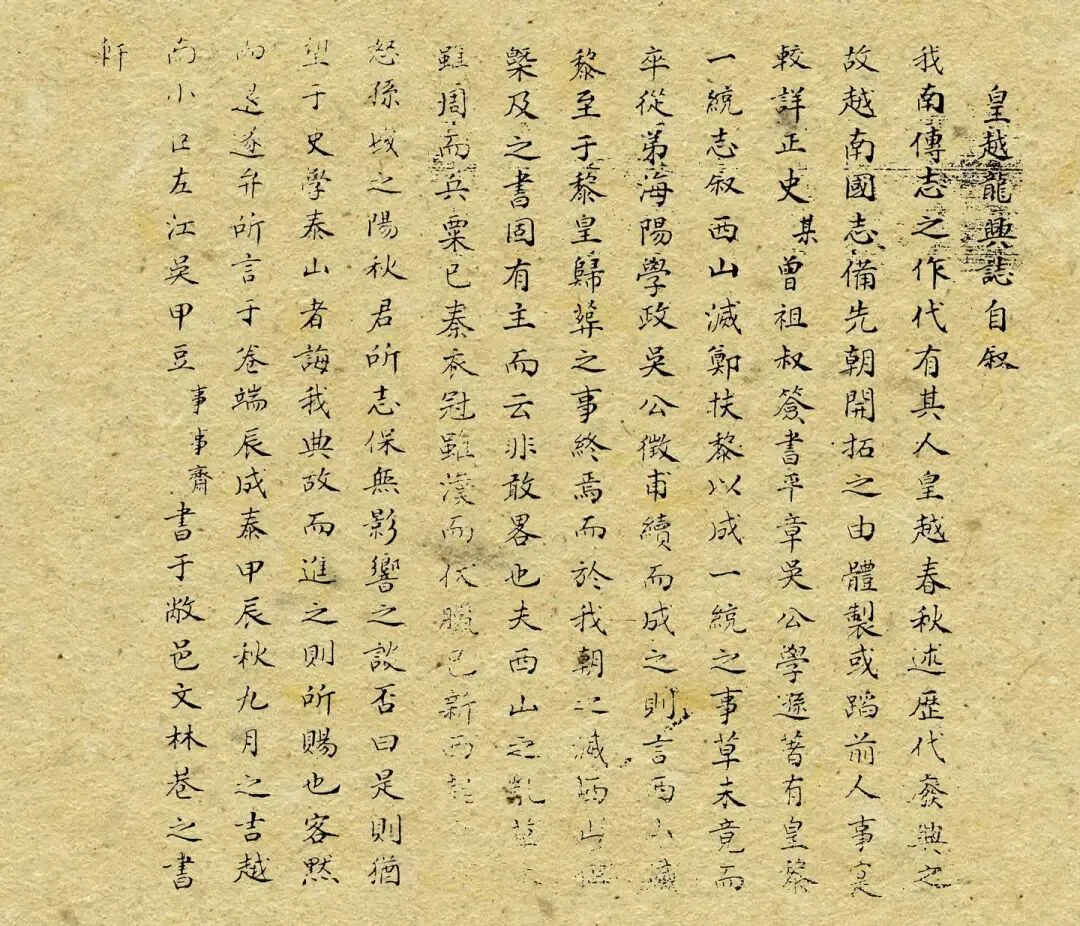 皇越龍興誌自叙
我南傳志之作代有其人皇越春秋述歷代廢興之
故越南國志備先朝開拓之由體製或蹈前人事寔
較詳正史某曾祖叔簽書平章吳公學遜著有皇黎
一統志叙西山滅鄭扶黎以成一統之事草未竟而
卒從弟海陽學政吳公徵甫續而成之則言西山滅
黎至于黎皇歸葬之事終焉而於我朝之滅西山
槩及之書固有主而云非敢畧也夫西山之亂
雖周而兵粟已秦衣冠雖漢而代臘已新西
怒孫盛之陽秋君所志保無影響之談否曰是則猶
望于史學泰山者誨我典故而進之則所賜也客默
而退遂弁所言于卷端辰成泰甲辰秋九月之吉越
南小臣左江吳甲豆事事齋書于敝邑文林巷之書
軒